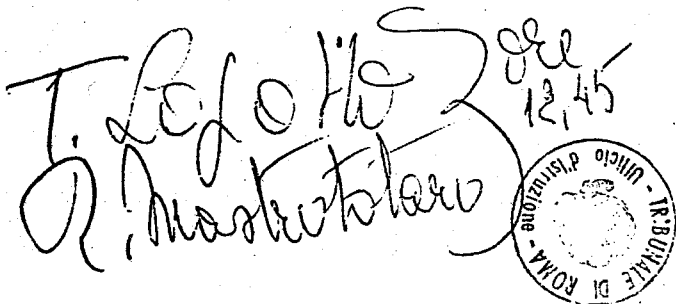 T. Ligotto
ore
12,45
R. Mastrototaro
TRIBUNALE DI ROMA - Ufficio d'Istruzione -